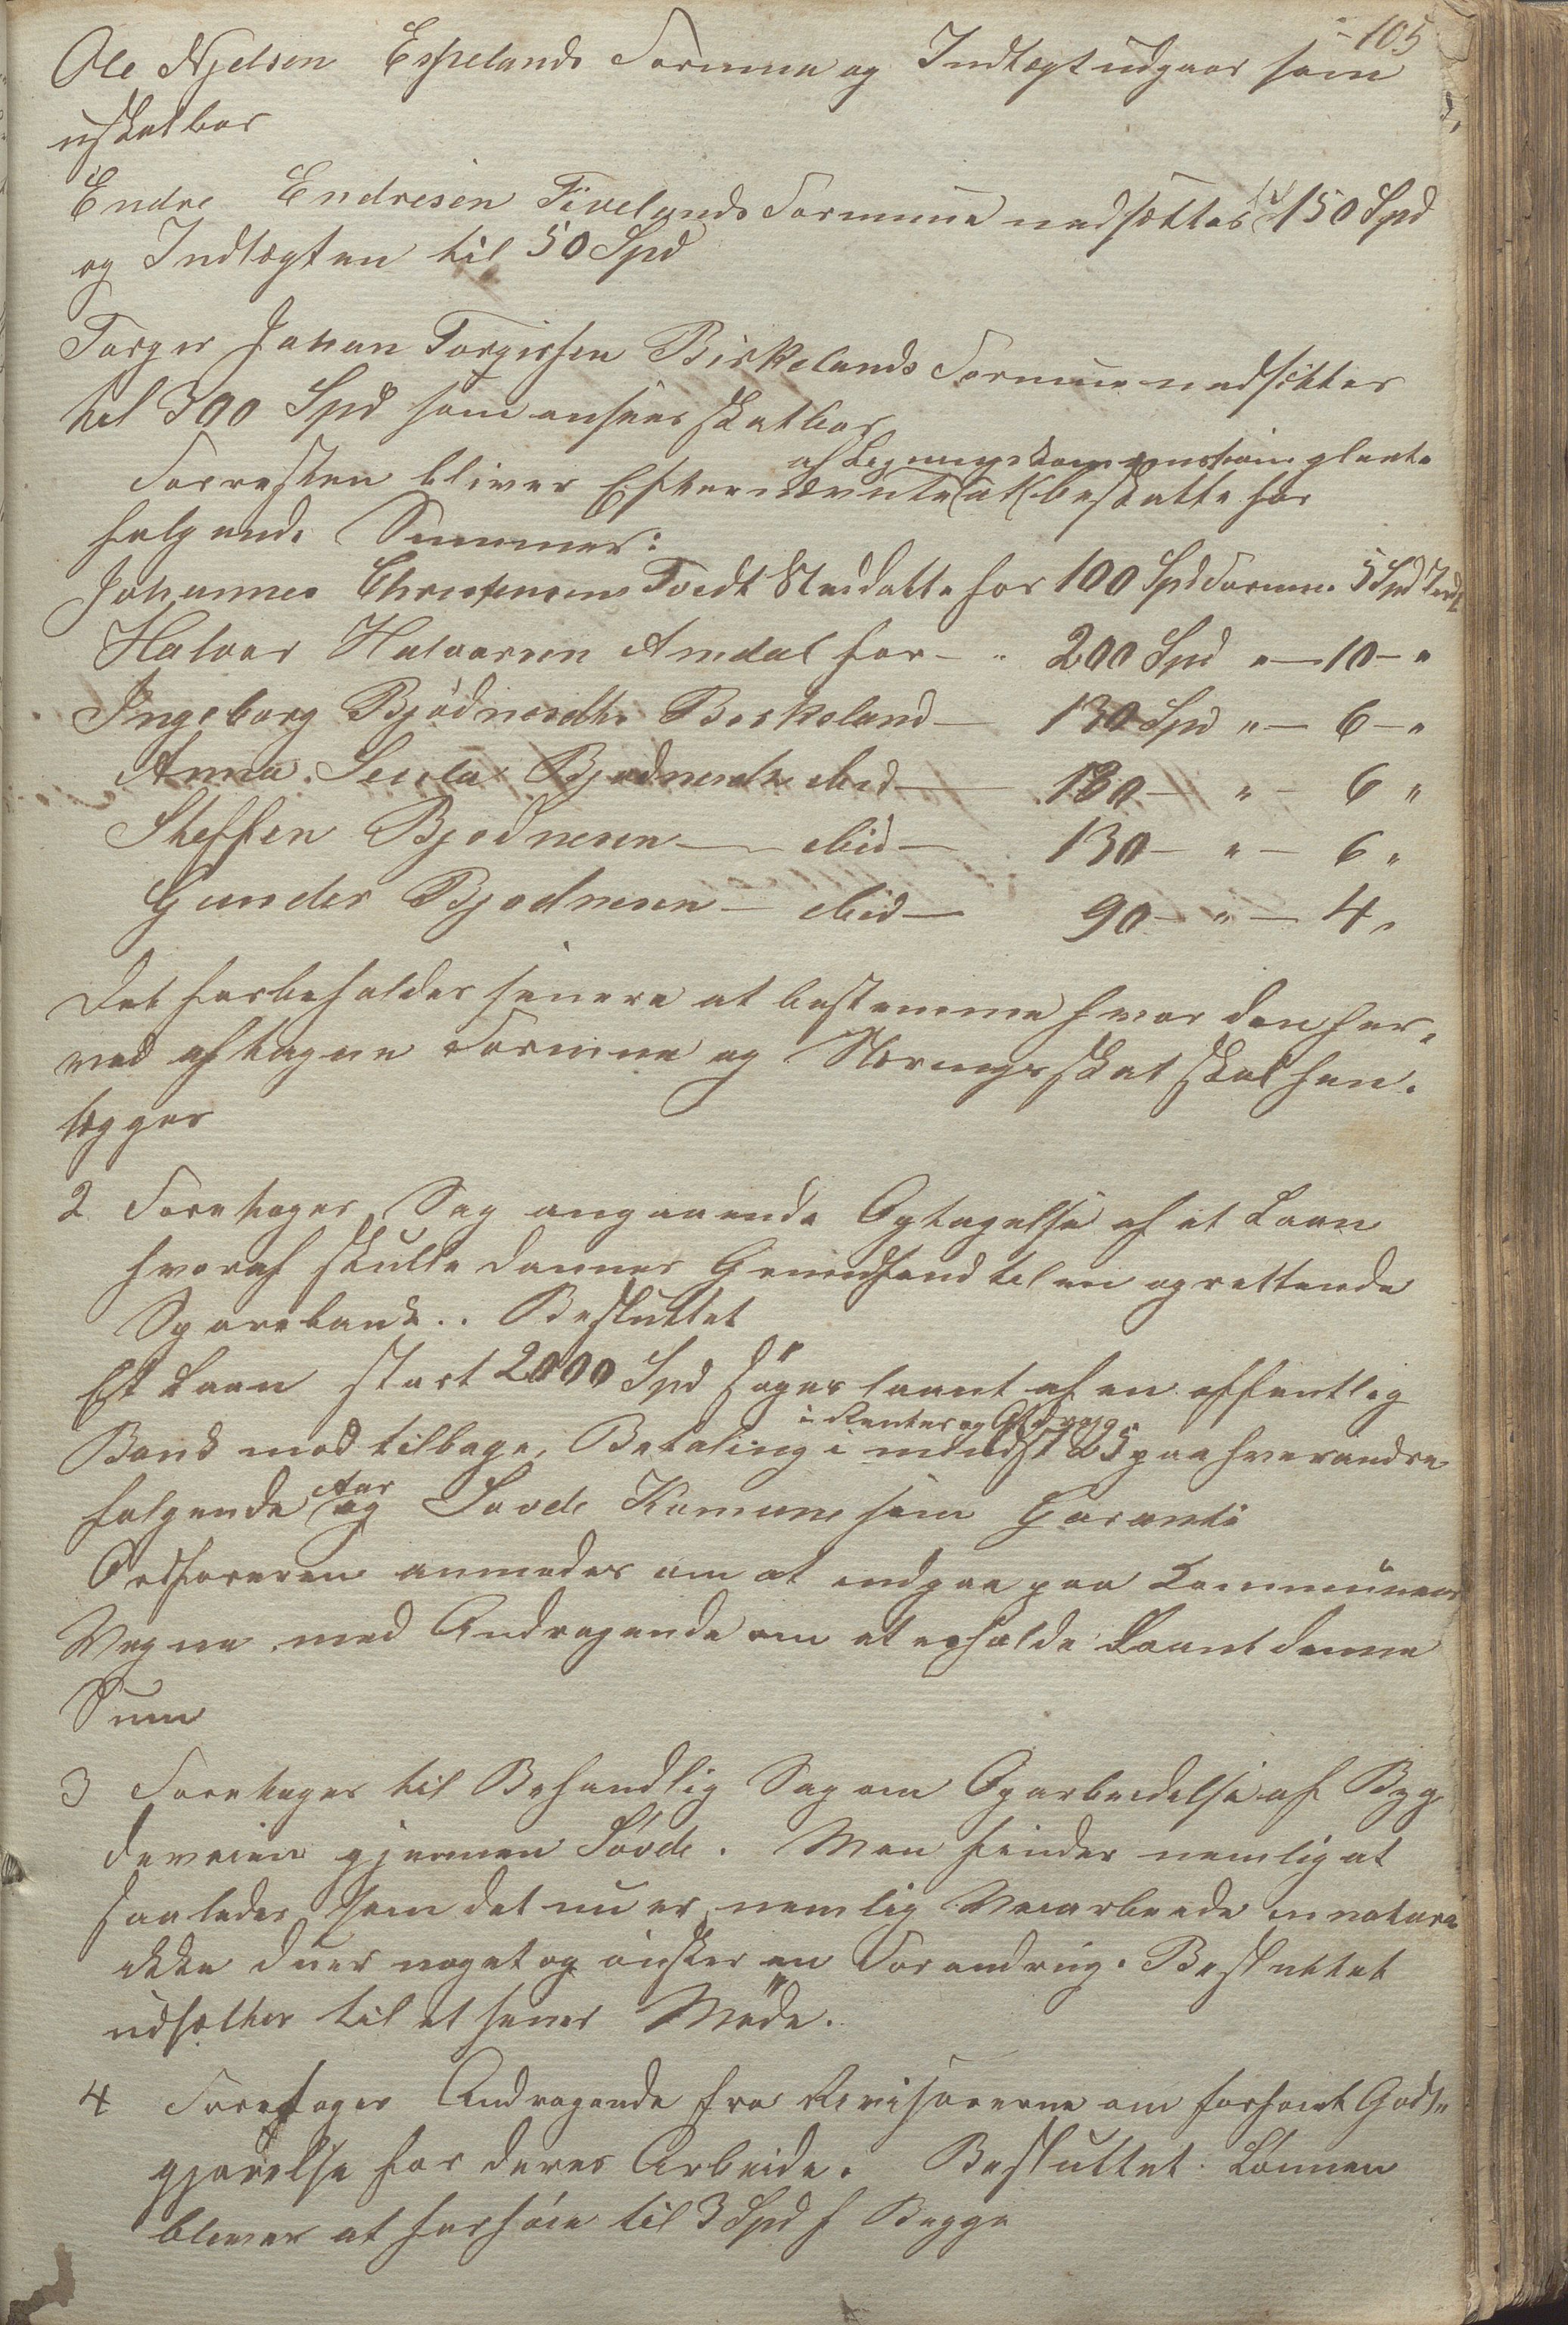 105
Ole Njelsen Espelands Formue og Indtægt udgaar som
uskatbar
Endre Endresen Tivelands Formue nedsættes til 150 Spd
og Indtægten til 50 Spd
Torger Johan Torgersen Birkelands Formue nedsættes
til 300 Spd som ansees skatbar
Forresten bliver Efternævnte af Ligningskommissionen glemte at beskatte for
følgende Summer:
Johannes Christensen Tvedt Skatte for 100 Spd Formue 5 Spd Indt
Halvor Halvorsen Amdal for - " 200 Spd " - 10 - "
Ingeborg Bjødnesdtr Birkeland - 130 Spd " - 6 - "
Anna Bjødnesdtr ibid - 130 - " - 6 "
Steffen Bjødnesen - ibid - 130 - " - 6 "
Gunder Bjødnesen - ibid - 90 - " - 4 "
Det forbeholdes senere at bestemme hvor den her-
ved aftagne Formue og Næringsskat skal hen-
lægges
2 Foretoges Sag angaaende Optagelse af et Laan
hvoraf skulle dannes Grundfond til en oprettende
Sparebank.. Besluttet
Et Laan stort 2000 Spd søges laant af en offentlig
Bank mod tilbage Betaling i mindst 25 i Renter og Afdrag paa hverandre
følgende Aar og Søvde Komune som Garanti
Ordføreren anmodes om at indgaa paa Kommunens
Vegne med Andragende om at erholde Laant denne
Sum
3 Foretoges til Behandlig Sag om Oparbeidelse af Byg
deveien gjennem Søvde. Man finder nemlig at
saaledes som det nu er nemlig Veiarbeide in natura
ikke duer noget og ønsker en Forandring. Besluttet
udsættes til et sener Møde.
4 Foretoges Andragende fra Revisorerne om forhøiet Godt-
gjørelse for deres Arbeide. Besluttet Lønnen
bliver at forhøie til 3 Spd f Begge